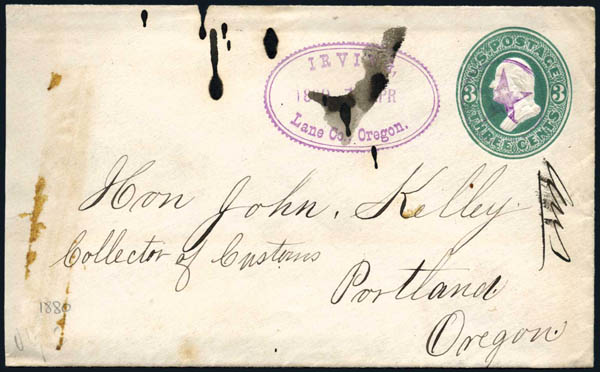 IRVING,
APR
Lane Co. Oregon.
U.S. POSTAGE
3 3
THREE CENTS
Hon John. Kelley.
Collector of Customs
Portland
Oregon.
1880